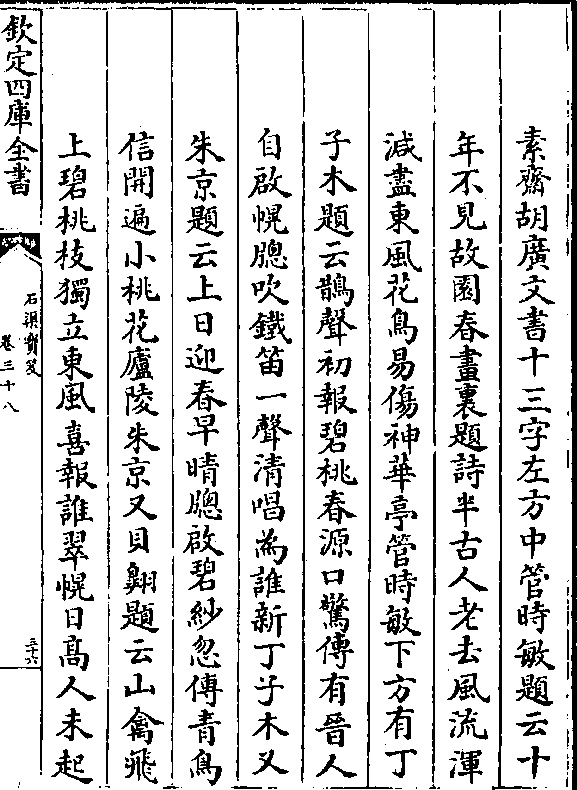 素齋胡廣文書十三字左方中管時敏題云十
年不見故園春畫裏題詩半古人老去風流渾
減盡東風花鳥易傷神華亭管時敏下方有丁
子木題云鵲聲初報碧桃春源口驚傳有晉人
自啟幌牎吹鐵笛一聲清唱為誰新丁子木又
朱京題云上日迎春早晴牎啟碧紗忽傳青鳥
信開遍小桃花廬陵朱京又貝翺題云山禽飛
上碧桃枝獨立東風喜報誰翠幌日高人未起
欽定四庫全書
石渠寶笈
卷三十八
三十六